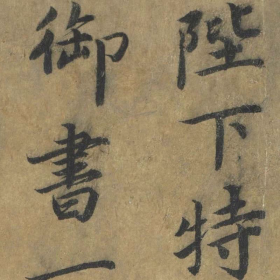 陛下特
御書一